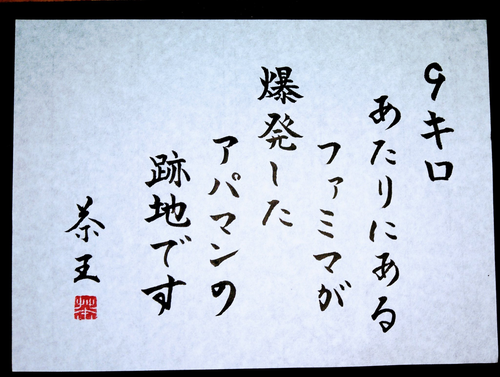 9キロ
あたりにある
ファミマが
爆発した
アパマンの
跡地です
茶王